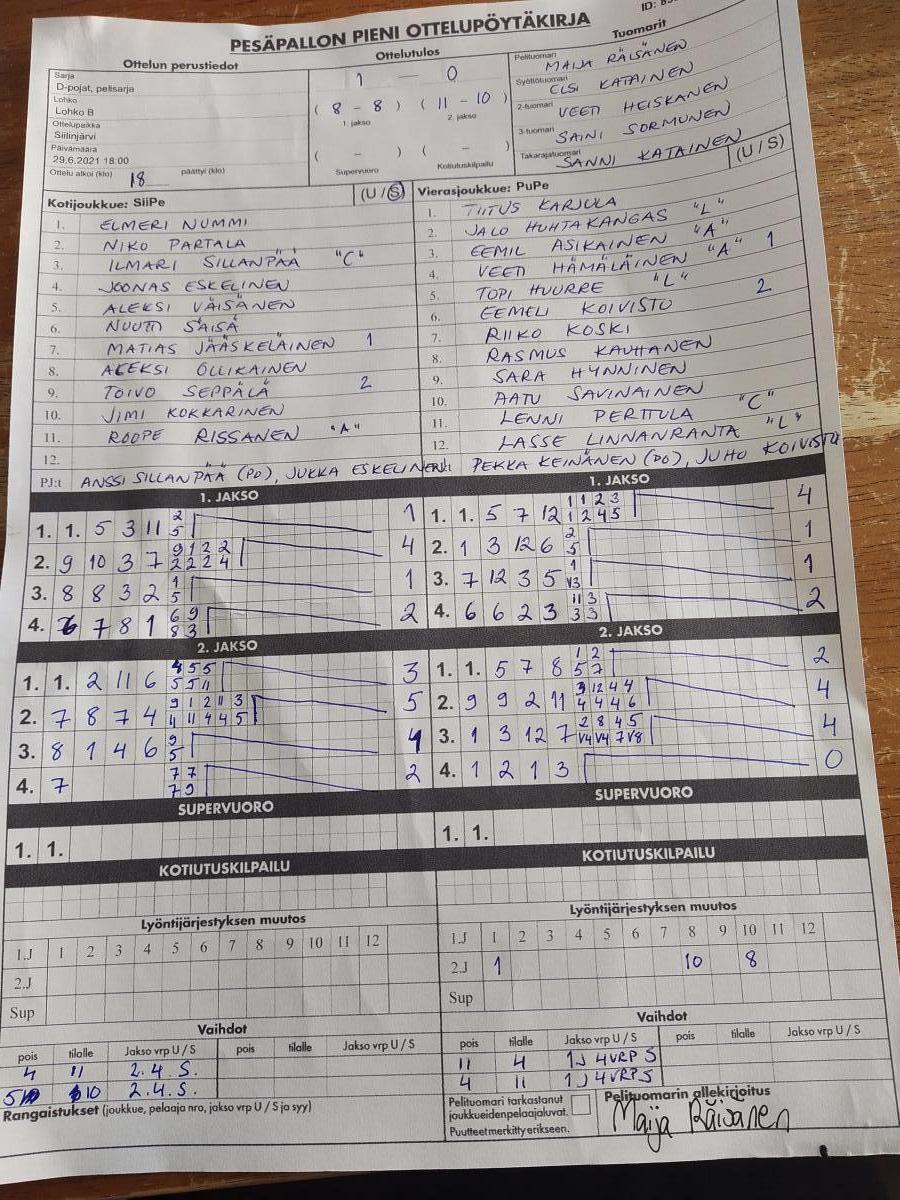 ID:
PESÄPALLON PIENI OTTELUPÖYTÄKIRJA
Ottelun perustiedot
Ottelutulos
Tuomarit
Sarja
D-pojat, pelisarja
Lohko
Lohko B
Ottelupaikka
Siilinjärvi
Päivämäärä
29.6.2021 18:00
Ottelu alkoi (klo) 18 päättyi (klo)
1 — 0
( 8 - 8 ) ( 11 - 10 )
1. jakso 2. jakso
( - ) ( - )
Supervuoro Kotiutuskilpailu
Pelituomari MAIJA RÄISÄNEN
Syöttötuomari ELSI KATAINEN
2-tuomari VEETI HEISKANEN
3-tuomari SAINI SORMUNEN
Takarajatuomari SANNI KATAINEN
Kotijoukkue: SiiPe (U / S)
1. ELMERI NUMMI
2. NIKO PARTALA
3. ILMARI SILLANPÄÄ "C"
4. JOONAS ESKELINEN
5. ALEKSI VÄISÄNEN
6. NUUTTI SÄISÄ
7. MATIAS JÄÄSKELÄINEN 1
8. ALEKSI OLLIKAINEN
9. TOIVO SEPPÄLÄ 2
10. JIMI KOKKARINEN
11. ROOPE RISSANEN "A"
12.
PJ:t ANSSI SILLANPÄÄ (PO), JUKKA ESKELINEN
Vierasjoukkue: PuPe (U / S)
1. TIITUS KARJULA
2. JALO HUHTAKANGAS "L"
3. EEMIL ASIKAINEN "A"
4. VEETI HÄMÄLÄINEN "A" 1
5. TOPI HUURRE "L"
6. EEMELI KOIVISTO 2
7. RIIKO KOSKI
8. RASMUS KAUHANEN
9. SARA HYNNINEN
10. AATU SAVINAINEN
11. LENNI PERTTULA "C"
12. LASSE LINNANRANTA "L"
PEKKA KEINÄNEN (PO), JUHO KOIVISTO
1. JAKSO
1. 1. 5 3 11 2 1
5
2. 9 10 3 7 9 1 2 2 4
2 2 2 4
3. 8 8 3 2 1 1
5
4. 7 8 1 6 9 2
8 3
2. JAKSO
1. 1. 2 11 6 4 5 5 3
5 5 11
2. 7 8 7 4 9 1 2 11 3 5
11 11 4 4 5
3. 8 1 4 6 9
5
4. 7 7 7 2
7 9
SUPERVUORO
1. 1.
KOTIUTUSKILPAILU
1. JAKSO
1. 1. 5 7 12 1 1 2 3 4
1 2 4 5
2. 1 3 12 6 2 1
5
3. 7 12 3 5 1 1
V3
4. 6 6 2 3 11 3 2
3 3
2. JAKSO
1. 1. 5 7 8 1 2 2
5 7
2. 9 9 2 11 3 12 4 4 4
4 4 4 6
3. 1 3 12 7 2 8 4 5 4
V4 V4 7 V8
4. 1 2 1 3 0
SUPERVUORO
1. 1.
KOTIUTUSKILPAILU
Lyöntijärjestyksen muutos
1.J 1 2 3 4 5 6 7 8 9 10 11 12
2.J
Sup
Vaihdot
pois tilalle Jakso vrp U / S pois tilalle Jakso vrp U / S
4 11 2.4. S.
10 2.4. S.
Rangaistukset (joukkue, pelaaja nro, jakso vrp U / S ja syy)
Lyöntijärjestyksen muutos
1.J 1 2 3 4 5 6 7 8 9 10 11 12
2.J 1 10 8
Sup
Vaihdot
pois tilalle Jakso vrp U / S pois tilalle Jakso vrp U / S
11 4 1J 4VRP S
4 11 1J 4VRP S
Pelituomari tarkastanut
joukkueidenpelaajaluvat.
Puutteet merkitty erikseen.
Pelituomarin allekirjoitus
Maija Räisänen